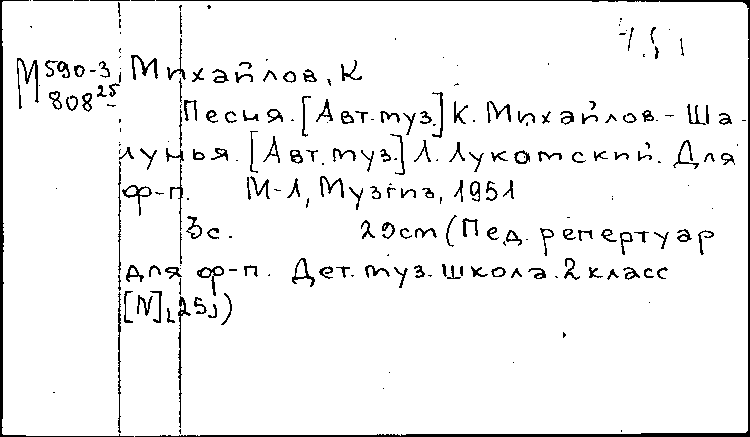 4.5 1
М 590-3 Михайлов, К
808 25
Песня. [Авт. муз.] К. Михайлов. - Ша-
лунья. [Авт. муз.] Л. Лукомский. Для
ф-п. М-Л, Музгиз, 1951
3с. 29cm (Пед. репертуар
для ф-п. Дет. муз. школа. 2 класс
[N] [25])